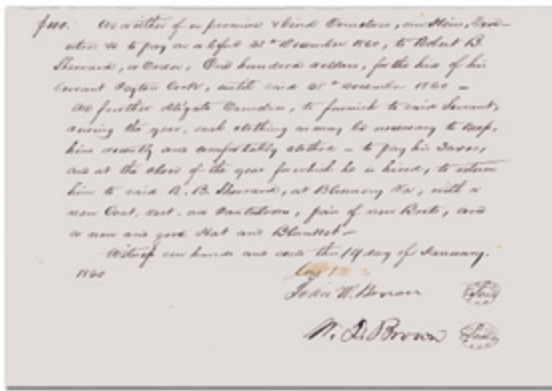 $100. As either of us promise & bind Ourselves, our Heirs, Exe-
cutors &c to pay on or before 25th December 1860, to Robert B.
Sherrard, or Order, One hundred dollars, for the hire of his
Servant Peyton Cook, until said 25th December 1860 =
As further obligate Ourselves, to furnish to said Servant,
during the year, such clothing as may be necessary to keep,
him decently and comfortably clothed = to pay his Taxes,
and at the close of the year for which he is hired, to return
him to said R. B. Sherrard, at Bloomery Va, with a
new Coat, vest, and Pantaloons, pair of new Boots, and
a new and good Hat and Blanket =
Witness our hands and seals this 14 day of January.
1860
John W. Brown Seal
W. D. Brown Seal